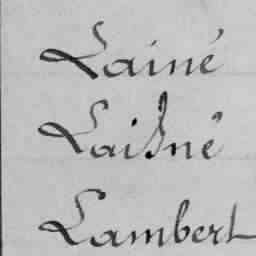 Lainé
Laisné
Lambert